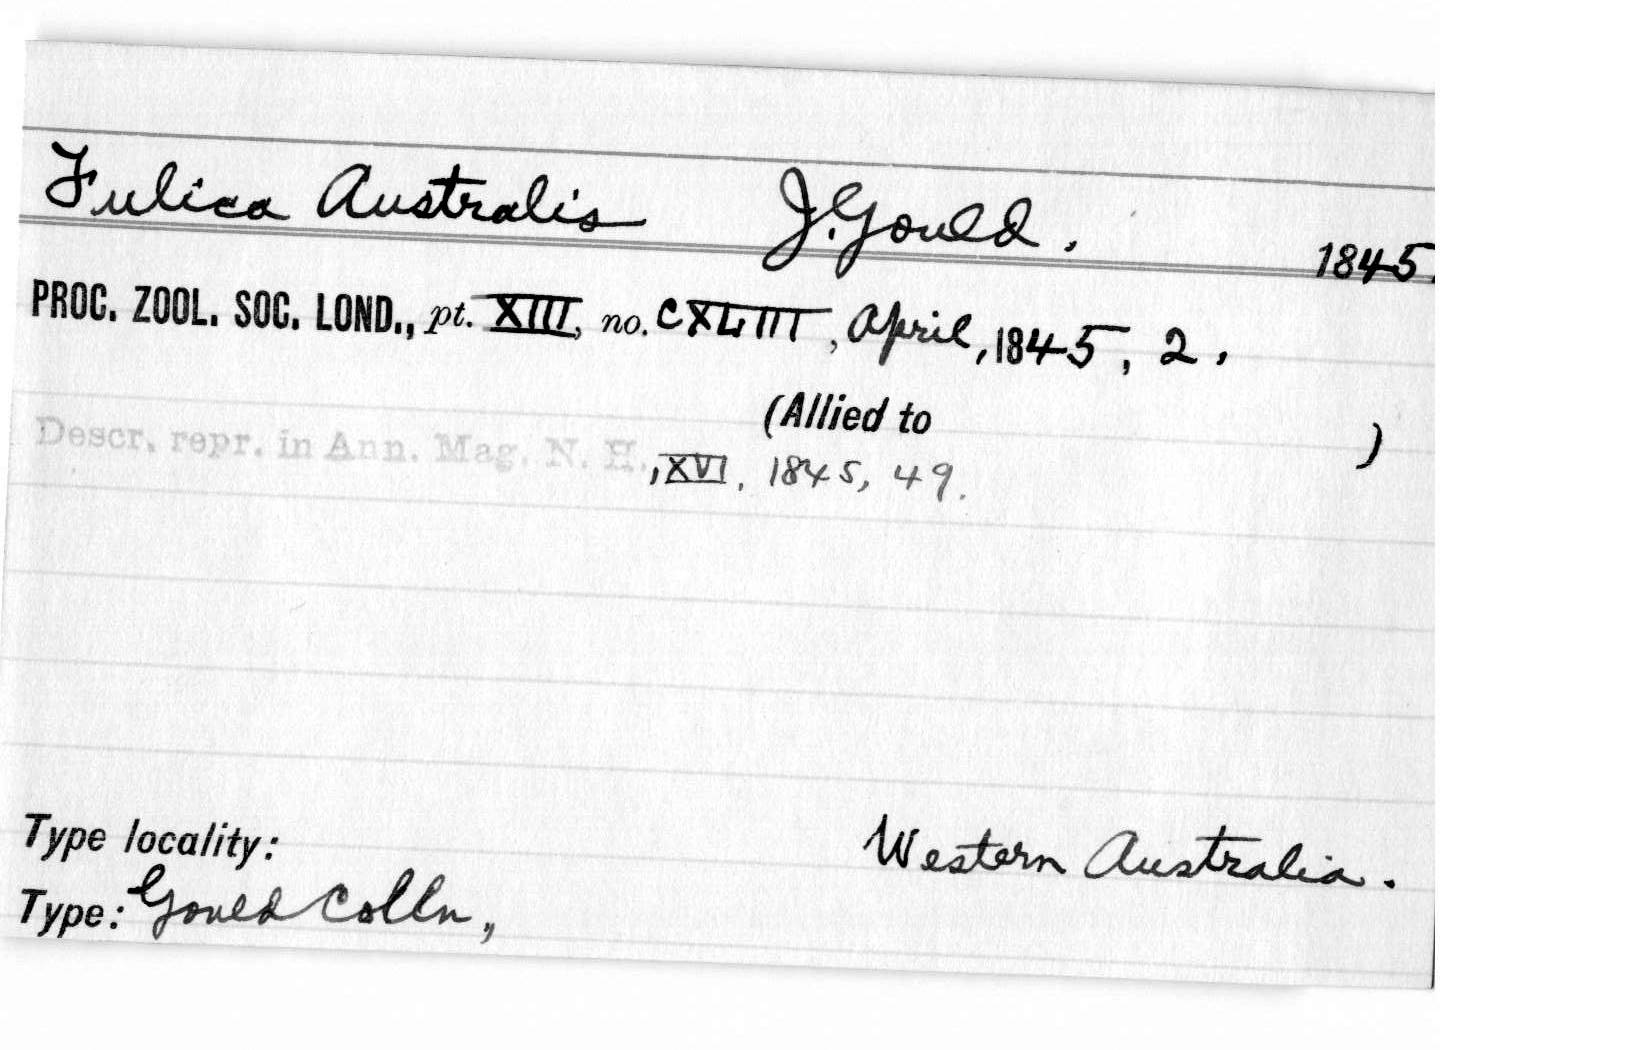 Fulica Australis J. Gould. 1845.
PROC. ZOOL. SOC. LOND., pt. XIII, no. CXLIII, April, 1845, 2.
(Allied to )
Descr. repr. in Ann. Mag. N. H., XVI, 1845, 49.
Type locality: Western Australia.
Type: Gould Colln,